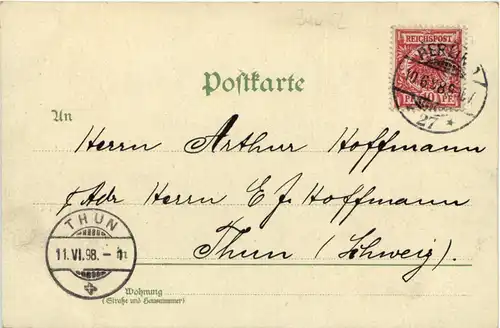 REICHSPOST
BERLIN
10 PF
27
Postkarte
An
Herrn Arthur Hoffmann
p/Adr Herrn E J. Hoffmann
Thun (Schweiz).
THUN
11.VI.98.
Wohnung
(Straße und Hausnummer)